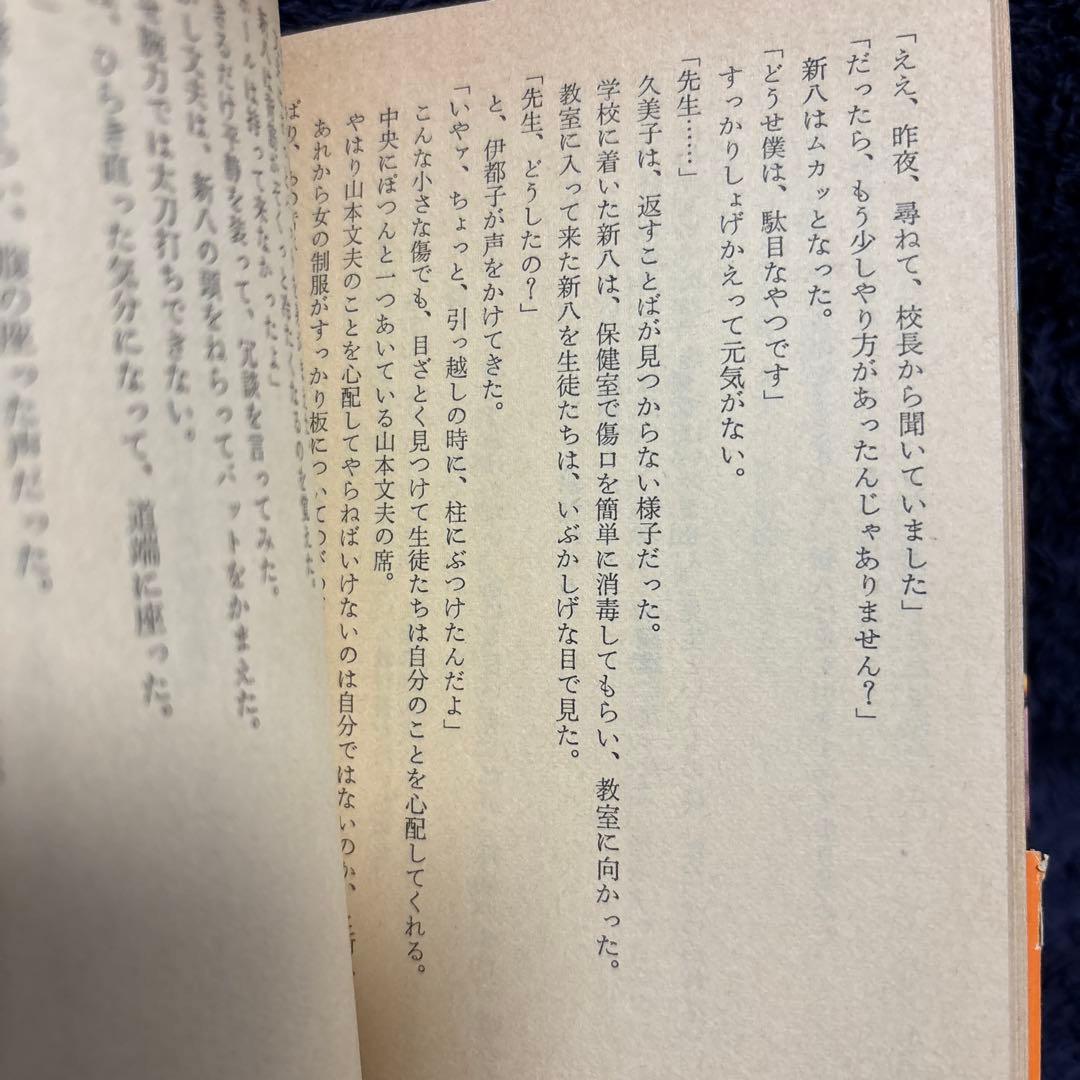 「ええ、昨夜、尋ねて、校長から聞いていました」
「だったら、もう少しやり方があったんじゃありません？」
新八はムカッとなった。
「どうせ僕は、駄目なやつです」
すっかりしょげかえって元気がない。
「先生……」
久美子は、返すことばが見つからない様子だった。
学校に着いた新八は、保健室で傷口を簡単に消毒してもらい、教室に向かった。
教室に入って来た新八を生徒たちは、いぶかしげな目で見た。
「先生、どうしたの？」
と、伊都子が声をかけてきた。
「いやァ、ちょっと、引っ越しの時に、柱にぶつけたんだよ」
こんな小さな傷でも、目ざとく見つけて生徒たちは自分のことを心配してくれる。
中央にぽつんと一つあいている山本文夫の席。
やはり山本文夫のことを心配してやらねばいけないのは自分ではないのか、
あれから女の制服がすっかり板について
ールは持って来なかったよ」
きるだけ平静を装って、冗談を言ってみた。
し文夫は、新八の頭をねらってバットをかまえた。
腕力では太刀打ちできない。
ひらき直った気分になって、道端に座った。
腹の座った声だった。